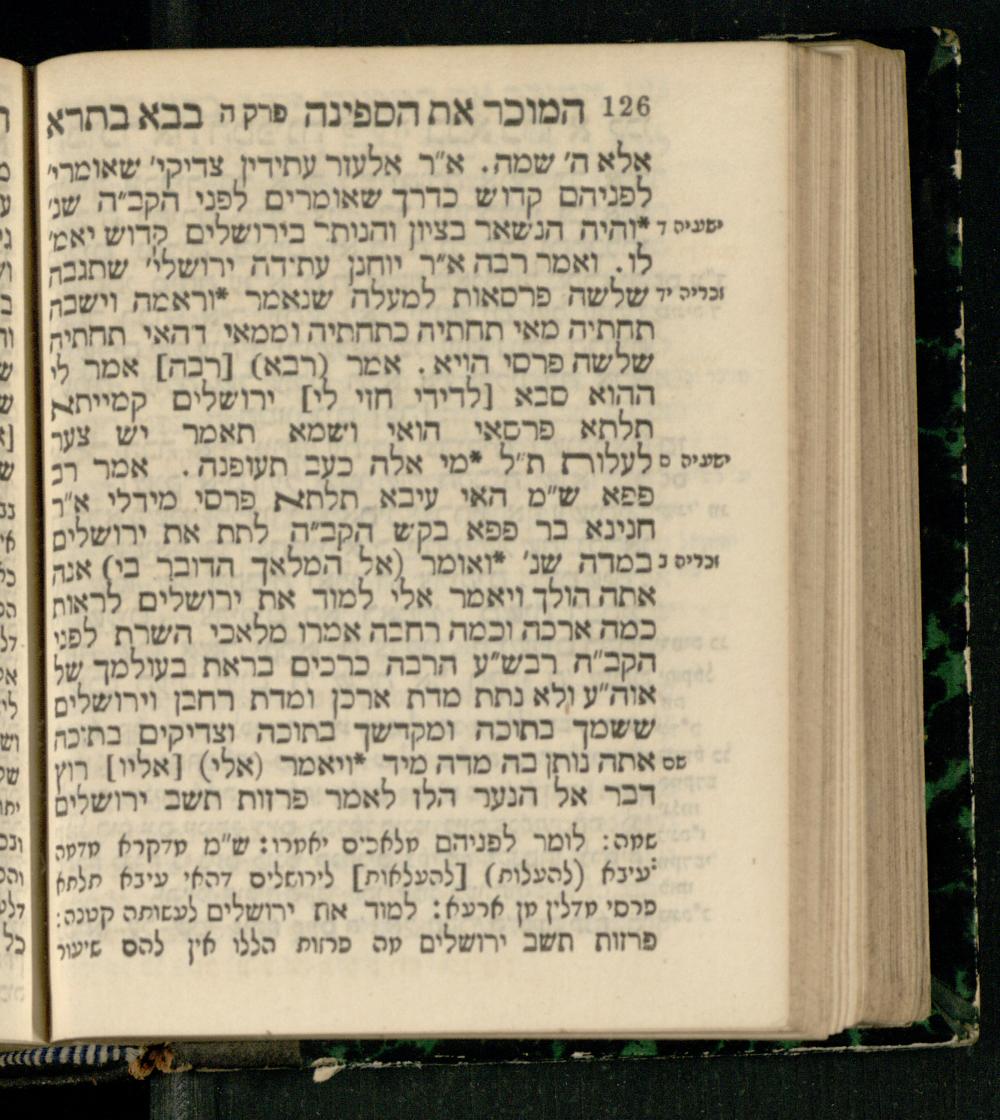 126 המוכר את הספינה פרק ה בבא בתרא
אלא ה' שמה. א"ר אלעזר עתידין צדיקי' שאומרי'
לפניהם קדוש כדרך שאומרים לפני הקב"ה שנ'
ישעיה ד *והיה הנשאר בציון והנותר בירושלים קדוש יאמ'
לו. ואמר רבה א"ר יוחנן עתידה ירושלי' שתגבה
זכריה יד שלשה פרסאות למעלה שנאמר *וראמה וישבה
תחתיה מאי תחתיה כתחתיה וממאי דהאי תחתיה
שלשה פרסי הויא. אמר (רבא) [רבה] אמר לי
ההוא סבא [לדידי חזי לי] ירושלים קמייתא
תלתא פרסאי הואי ושמא תאמר יש צער
ישעיה ס לעלות ת"ל *מי אלה כעב תעופנה. אמר רב
פפא ש"מ האי עיבא תלתא פרסי מידלי א"ר
חנינא בר פפא בקש הקב"ה לתת את ירושלים
זכריה ב במדה שנ' *ואומר (אל המלאך הדובר בי) אנה
אתה הולך ויאמר אלי למוד את ירושלים לראות
כמה ארכה וכמה רחבה אמרו מלאכי השרת לפני
הקב"ה רבש"ע הרבה כרכים בראת בעולמך של
אוה"ע ולא נתת מדת ארכן ומדת רחבן וירושלים
ששמך בתוכה ומקדשך בתוכה וצדיקים בתוכה
שם אתה נותן בה מדה מיד *ויאמר (אלי) [אליו] רוץ
דבר אל הנער הלז לאמר פרזות תשב ירושלים
שמה: לומר לפניהם מלאכים יאמרו: ש"מ מדקרא מדמה
עיבא (להעלות) [להעלאות] לירושלים דהאי עיבא תלתא
פרסי מדלין מן ארעא: למוד את ירושלים לעשותה קטנה:
פרזות תשב ירושלים מה פרזות הללו אין להם שיעור